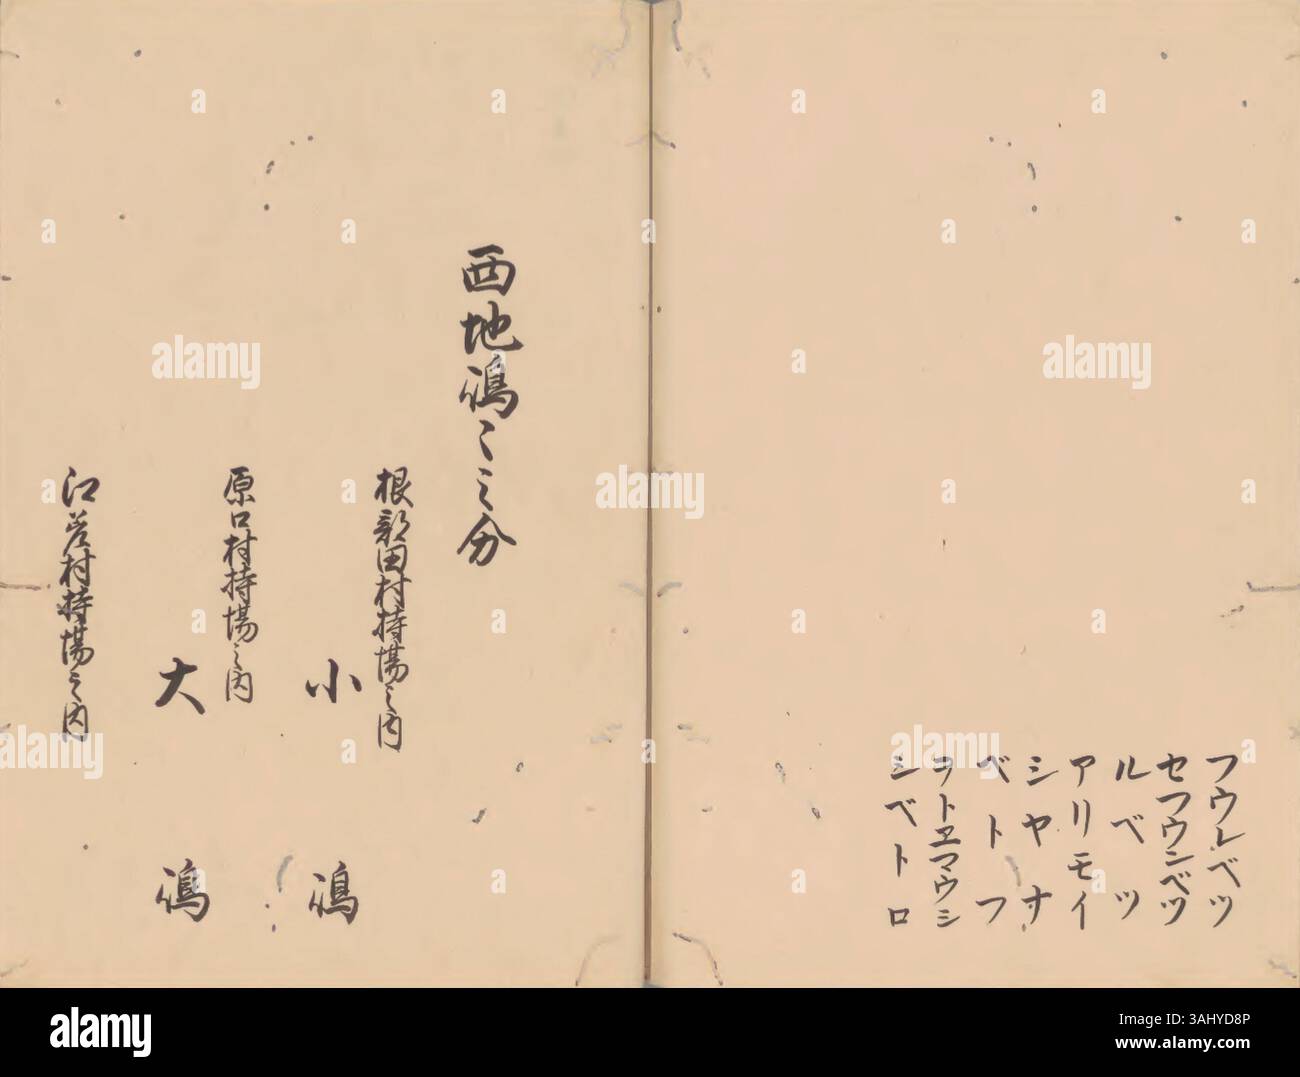 フウレベツ
セフウンベツ
ルベツ
アリモイ
シヤナ
ベトフ
ヲトヱマウシ
シベトロ
西地嶋〻之分
根部田村持場之内
小嶋
原口村持場之内
大嶋
江差村持場之内
alamy
Image ID: 3AHYD8P
www.alamy.com